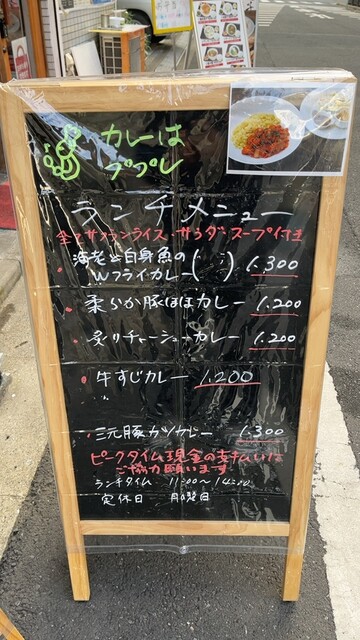 カレーは
ププレ
ランチメニュー
全てサフランライス サラダ スープ付き
・海老と白身魚の
Wフライカレー( ) 1.300
・柔らか豚ほほカレー 1.200
・炙りチャーシューカレー 1.200
・牛すじカレー 1.200
・三元豚カツカレー 1.300
ピークタイム現金の支払いに
ご協力願います
ランチタイム 11:00〜14:00
定休日 月曜日